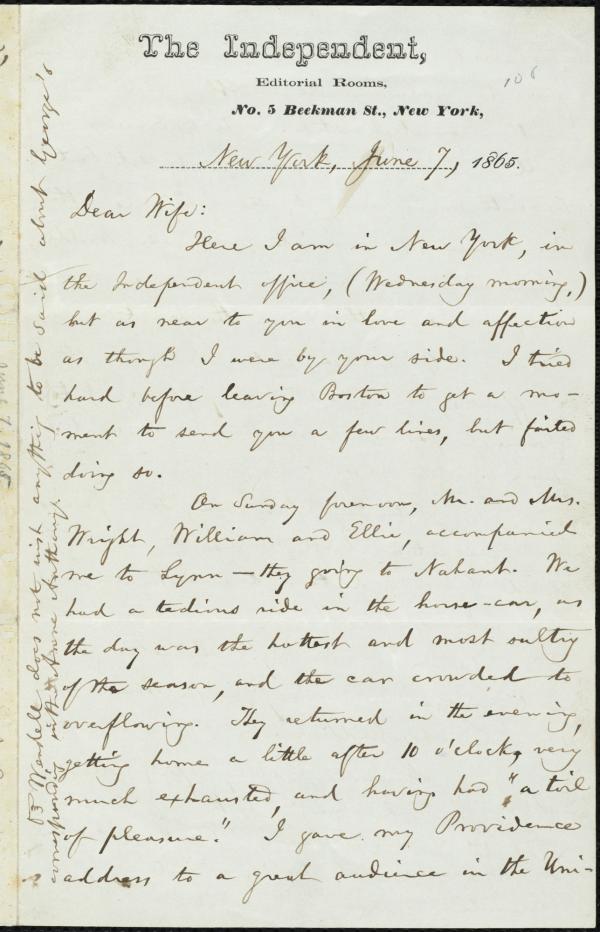 The Independent,
Editorial Rooms,
No. 5 Beekman St., New York,
108
New York, June 7, 1865.
Dear Wife:
Here I am in New York, in
the Independent office, (Wednesday morning,)
but as near to you in love and affection
as though I were by your side. I tried
hard before leaving Boston to get a mo-
ment to send you a few lines, but failed
doing so.
On Sunday forenoon, Mr. and Mrs.
Wright, William and Ellie, accompanied
me to Lynn — they going to Nahant. We
had a tedious ride in the horse-car, as
the day was the hottest and most sultry
of the season, and the car crowded to
overflowing. They returned in the evening,
getting home a little after 10 o'clock, very
much exhausted, and having had "a toil
of pleasure." I gave my Providence
address to a great audience in the Uni-
Wendell does not wish anything to be said about George's
corresponding with Annie Anthony.